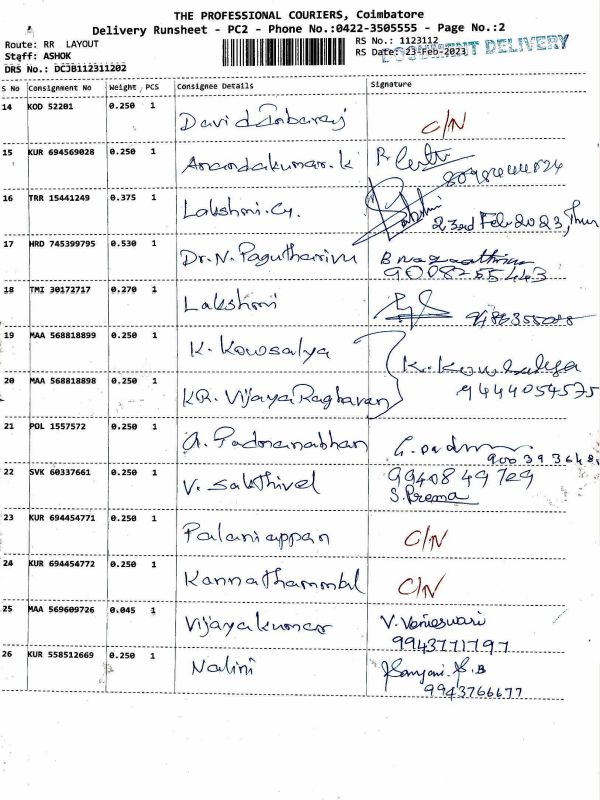 THE PROFESSIONAL COURIERS, Coimbatore
Delivery Runsheet - PC2 - Phone No.:0422-3505555 - Page No.:2
Route: RR LAYOUT
RS No.: 1123112
DOCUMENT DELIVERY
Staff: ASHOK
RS Date: 23-Feb-2023
DRS No.: DCJB112311202
S No Consignment No Weight PCS Consignee Details Signature
14 KOD 52201 0.250 1 David C/N
15 KUR 694569028 0.250 1 Anandakumar.K
16 TRR 15441249 0.375 1 Lakshmi.Cy. Lakshmi
23rd Feb 2023, Thur
17 HRD 745399795 0.530 1 Dr.N. Pagutharivu
9008755443
18 TMI 30172717 0.270 1 Lakshmi
19 MAA 568818899 0.250 1 K. Kowsalya K. Kowsalya
9444054575
20 MAA 568818898 0.250 1 KR. Vijaya Raghavan
21 POL 1557572 0.250 1 A. Padmanabhan
22 SVK 60337661 0.250 1 V. Sakthivel 9940849729
S. Prema
23 KUR 694454771 0.250 1 Palaniappan C/N
24 KUR 694454772 0.250 1 Kannathammal C/N
25 MAA 569609726 0.045 1 Vijayakumar V.
9943771797
26 KUR 558512669 0.250 1 Nalini
9943766677